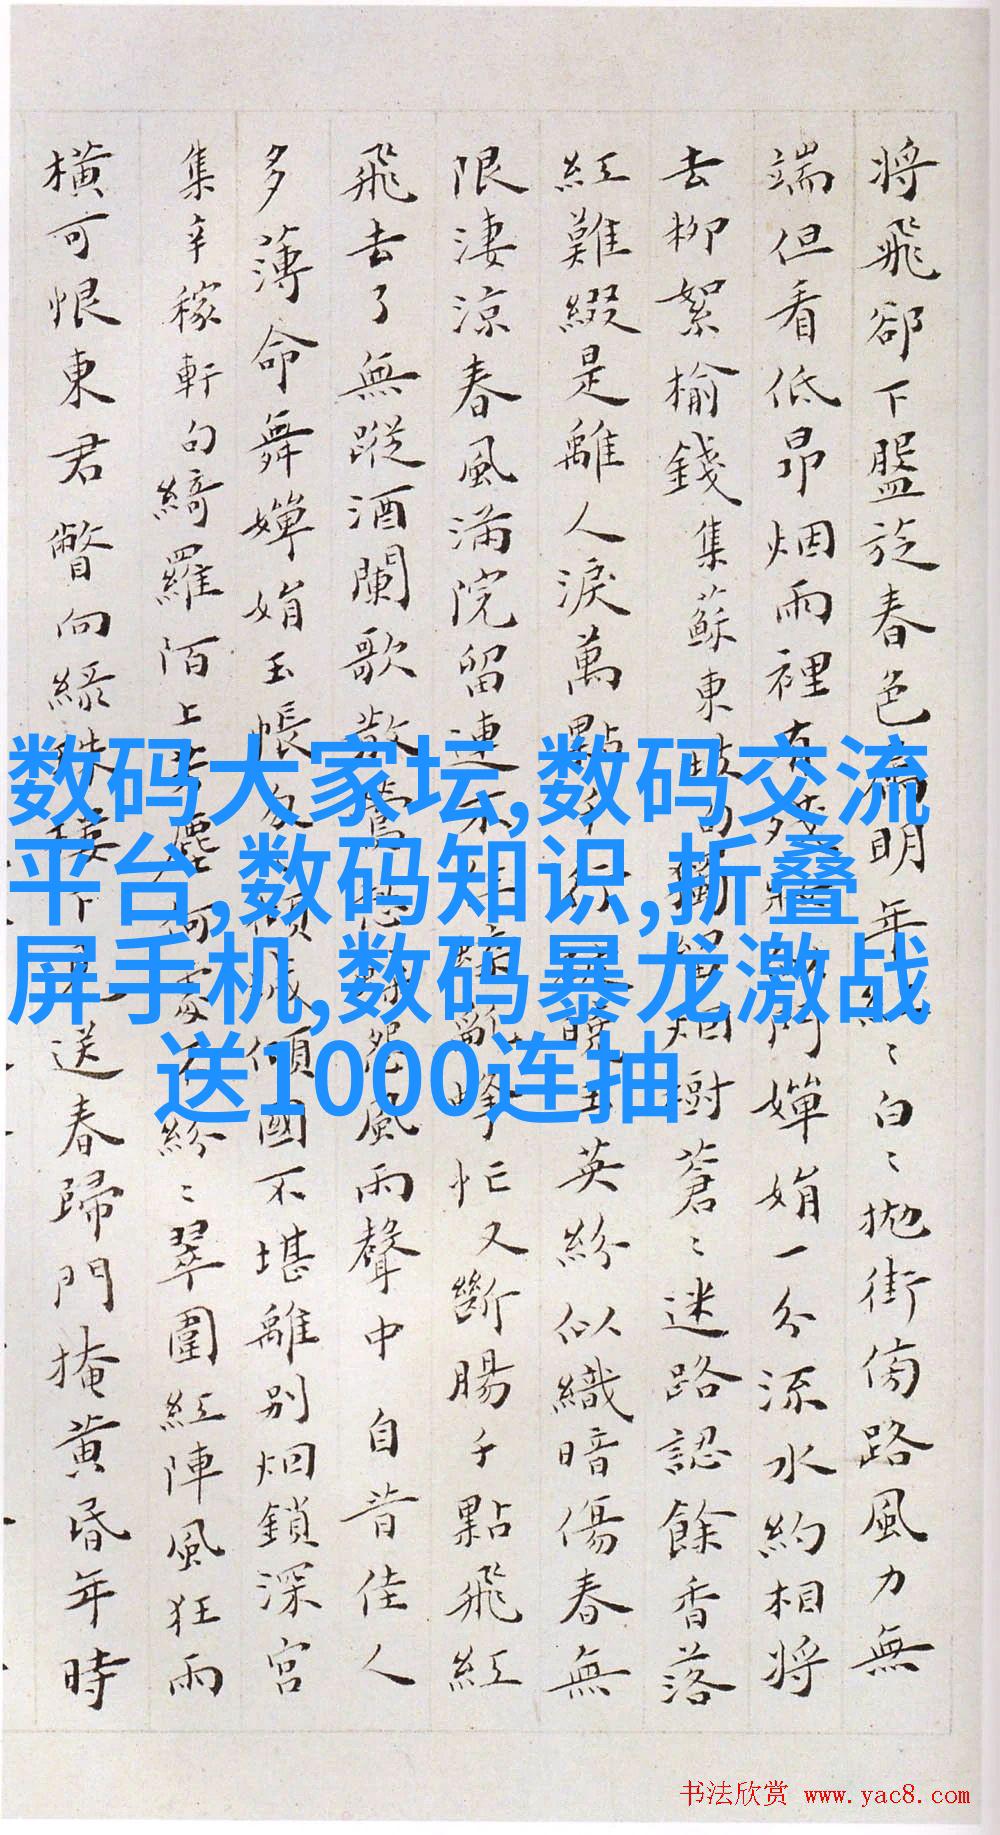 將飛卻下盤旋春色明年紅〻白〻拋街傍路風力無
端但看低昂烟雨裡有門嬋娟一分流水約相將
去柳絮榆錢集蘇東坡句獨鎖烟樹蒼〻迷路認餘香落
紅難綴是離人淚萬點多行玉英紛似織暗傷春無
限淒涼春風滿院留連不蜂忙又斷腸千點飛紅
飛去了無蹤酒闌歌散鶯愁蝶怨風雨聲中 自昔佳人
多薄命舞嬋娟玉帳傾城傾國不堪離別烟鎖深宮
集辛稼軒句綺羅陌上芳塵何處紛〻翠圍紅陣風狂雨
橫可恨東君瞥向綠珠樓下送春歸門掩黃昏年時
数码大家坛,数码交流
平台,数码知识,折叠
屏手机,数码暴龙激战
送1000连抽
书法欣赏 www.yac8.com